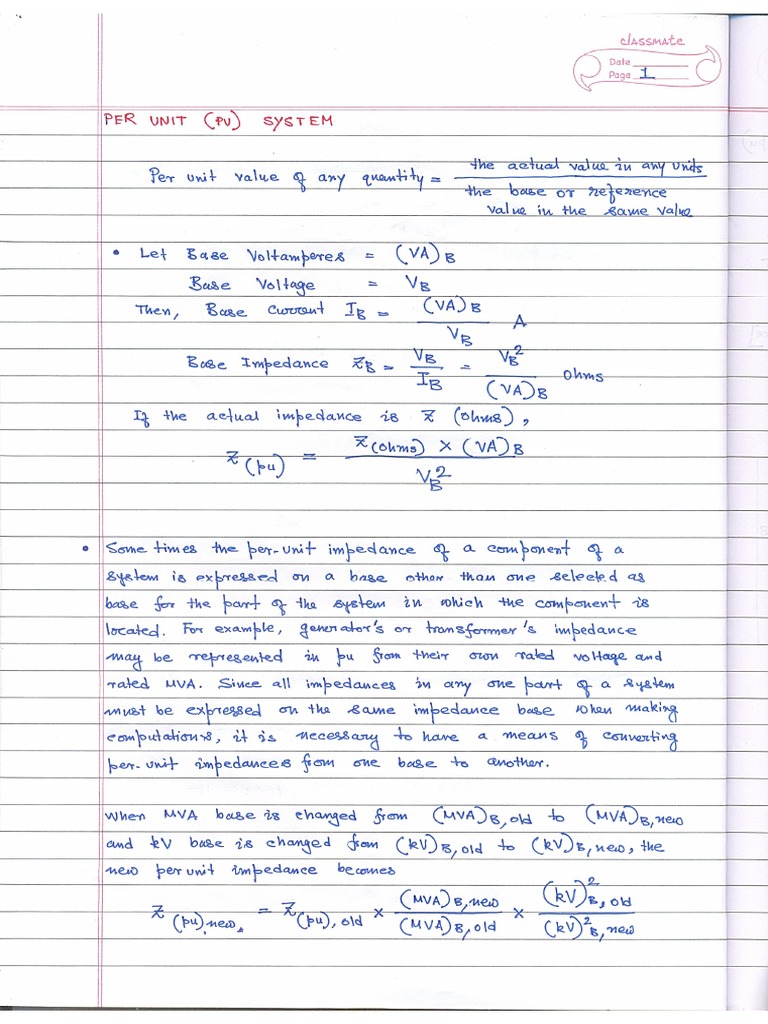 classmate
Date
Page 1
PER UNIT (PU) SYSTEM
Per unit value of any quantity = the actual value in any units / the base or reference value in the same value
• Let Base Voltamperes = (VA)_B
Base Voltage = V_B
Then, Base Current I_B = (VA)_B / V_B A
Base Impedance Z_B = V_B / I_B = V_B² / (VA)_B ohms
If the actual impedance is Z (ohms),
Z_(pu) = Z(ohms) × (VA)_B / V_B²
• Some times the per-unit impedance of a component of a
system is expressed on a base other than one selected as
base for the part of the system in which the component is
located. For example, generator's or transformer's impedance
may be represented in pu from their own rated voltage and
rated MVA. Since all impedances in any one part of a system
must be expressed on the same impedance base when making
computations, it is necessary to have a means of converting
per-unit impedances from one base to another.
When MVA base is changed from (MVA)_B,old to (MVA)_B,new
and kV base is changed from (kV)_B,old to (kV)_B,new, the
new per unit impedance becomes
Z_(pu),new. = Z_(pu),old × (MVA)_B,new / (MVA)_B,old × (kV)²_B,old / (kV)²_B,new